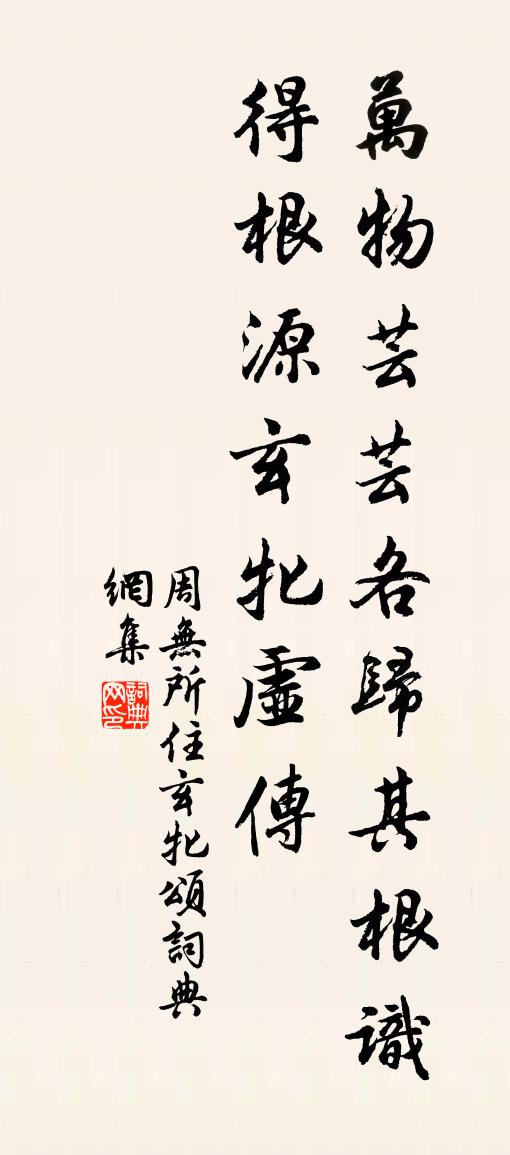 萬物芸芸各歸其根識
得根源玄牝虛傳
周無所住玄牝頌詞典
網集
詞典
网印